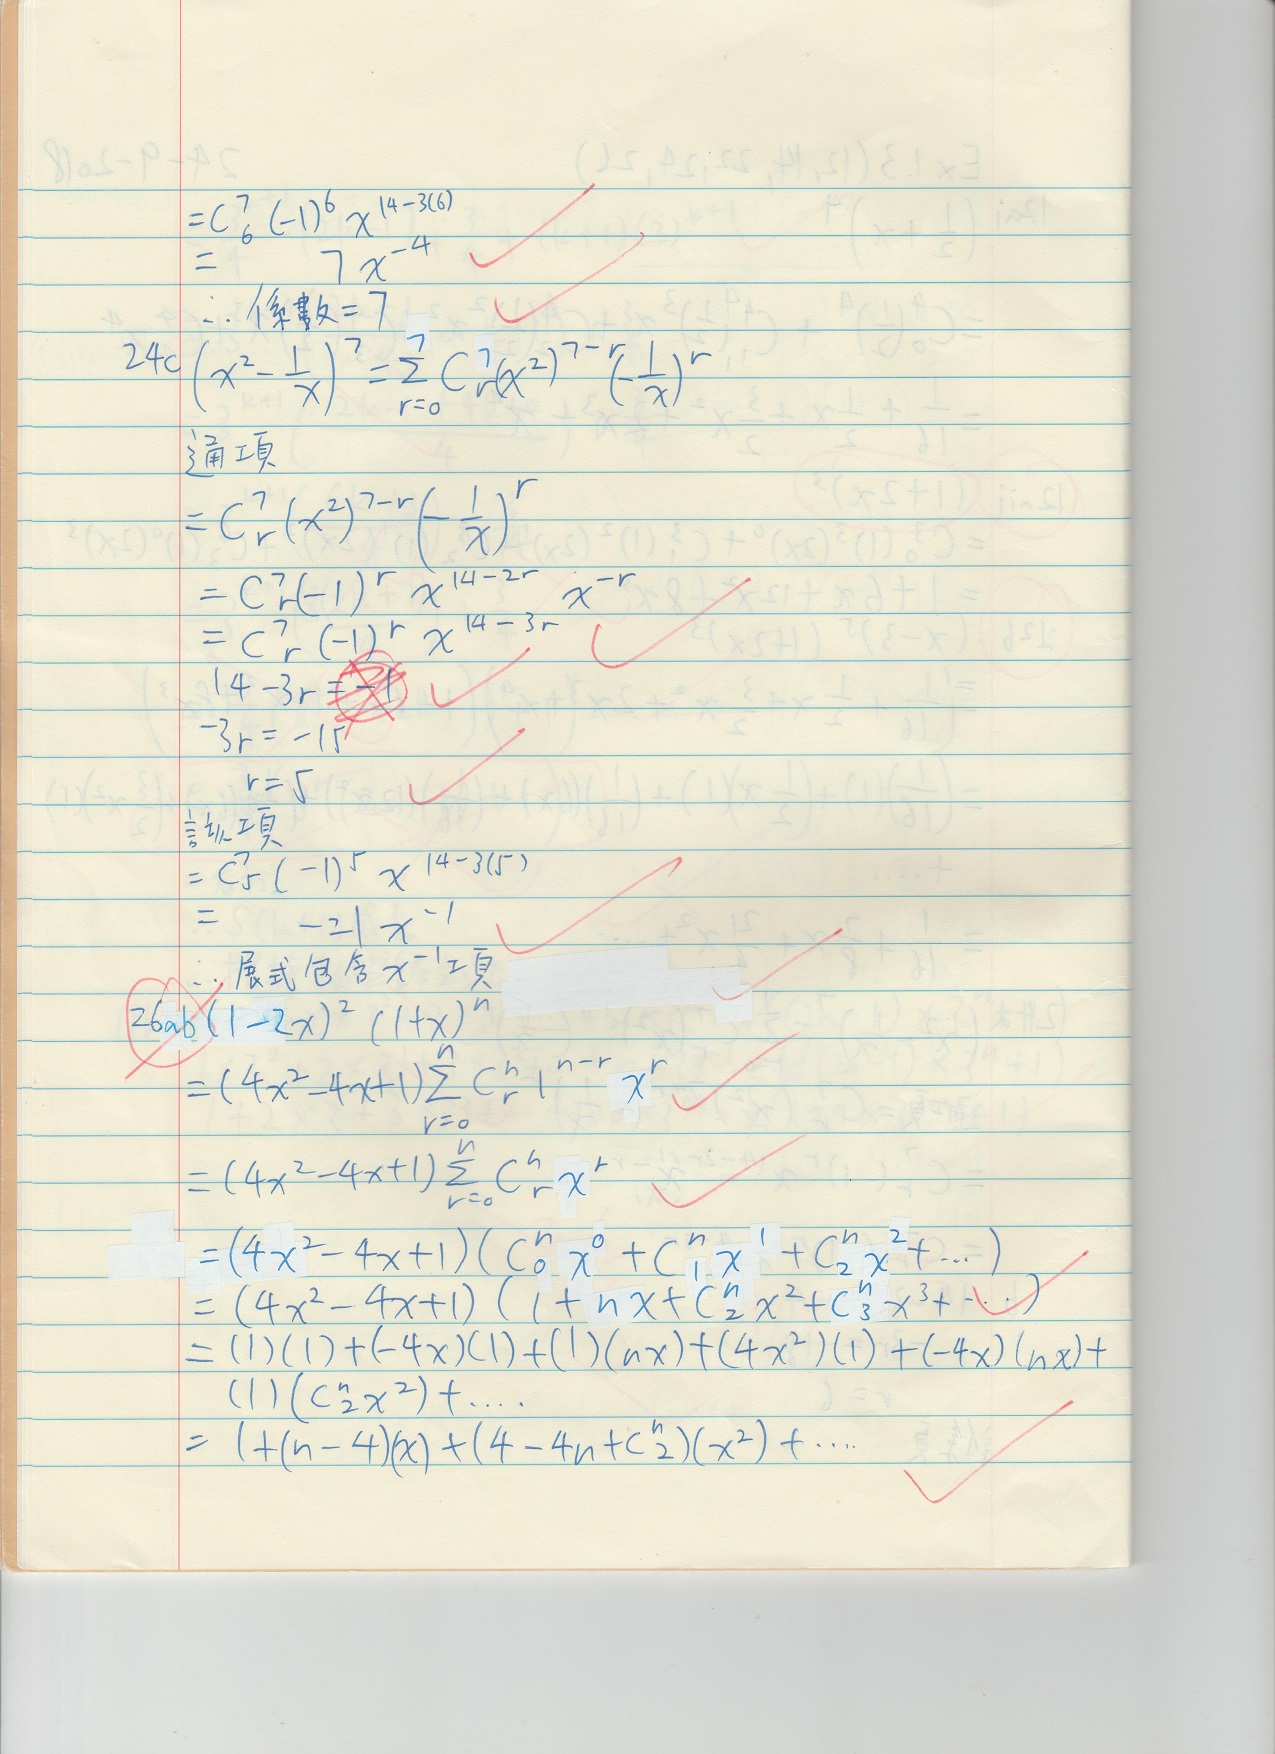 = C⁷₆ (-1)⁶ x¹⁴⁻³⁽⁶⁾
= 7x⁻⁴
∴ 係數 = 7
24c (x² - 1/x)⁷ = Σ⁷ᵣ₌₀ C⁷ᵣ (x²)⁷⁻ʳ (-1/x)ʳ
通項
= C⁷ᵣ (x²)⁷⁻ʳ (-1/x)ʳ
= C⁷ᵣ (-1)ʳ x¹⁴⁻²ʳ x⁻ʳ
= C⁷ᵣ (-1)ʳ x¹⁴⁻³ʳ
14 - 3r = -1
-3r = -15
r = 5
該項
= C⁷₅ (-1)⁵ x¹⁴⁻³⁽⁵⁾
= -21 x⁻¹
∴ 展式包含 x⁻¹ 項
26ab (1-2x)² (1+x)ⁿ
= (4x² - 4x + 1) Σⁿᵣ₌₀ Cⁿᵣ 1ⁿ⁻ʳ xʳ
= (4x² - 4x + 1) Σⁿᵣ₌₀ Cⁿᵣ xʳ
= (4x² - 4x + 1) (Cⁿ₀ x⁰ + Cⁿ₁ x¹ + Cⁿ₂ x² + ...)
= (4x² - 4x + 1) (1 + nx + Cⁿ₂ x² + Cⁿ₃ x³ + ....)
= (1)(1) + (-4x)(1) + (1)(nx) + (4x²)(1) + (-4x)(nx) +
(1)(Cⁿ₂ x²) + ....
= 1 + (n-4)(x) + (4 - 4n + Cⁿ₂)(x²) + ....